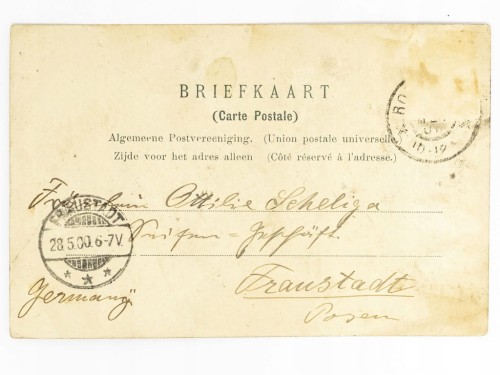 BRIEFKAART
(Carte Postale)
Algemeene Postvereeniging. (Union postale universelle)
Zijde voor het adres alleen (Côté réservé à l'adresse.)
Fräulein Ottilie Scheliga
Seifen=Geschäft.
Fraustadt
Posen
Germany
FRAUSTADT
28.5.00.6-7V.